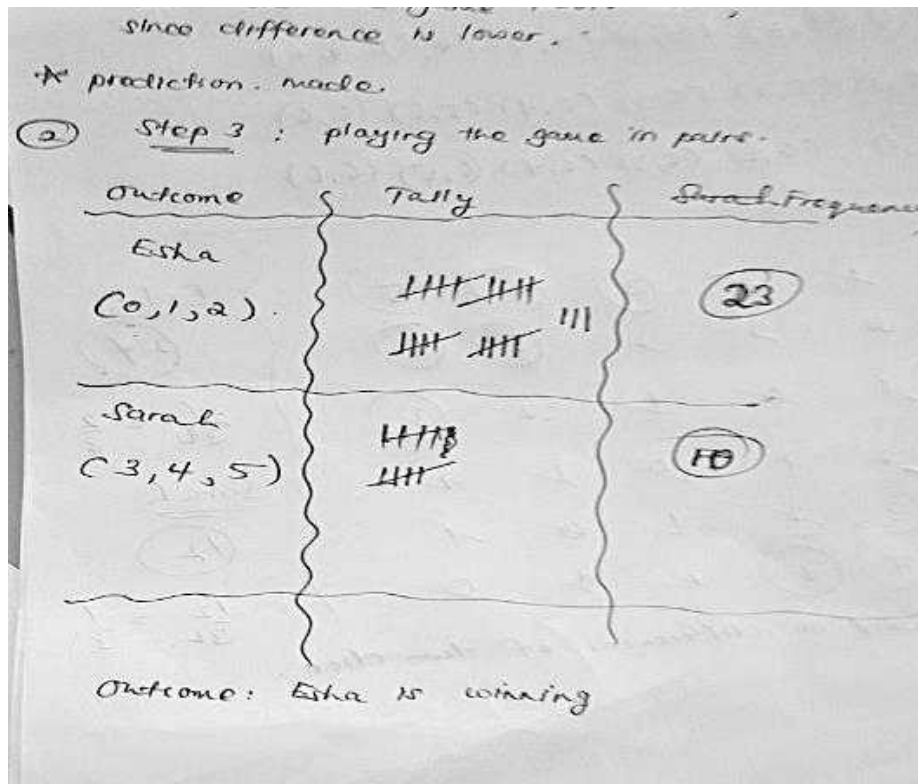 since difference is lower.
* prediction. made.
② Step 3 : playing the game in pairs.
Outcome Tally Frequenc
Esha
(0,1,2). 23
Sarah
(3,4,5) 10
Outcome: Esha is winning